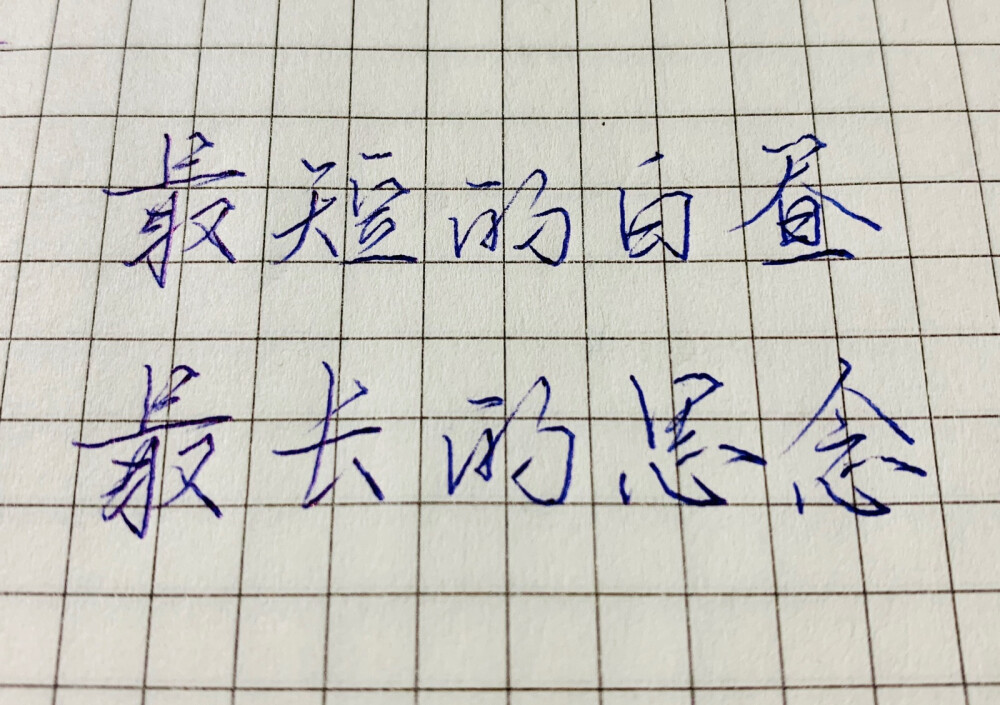 最短的白昼
最长的思念